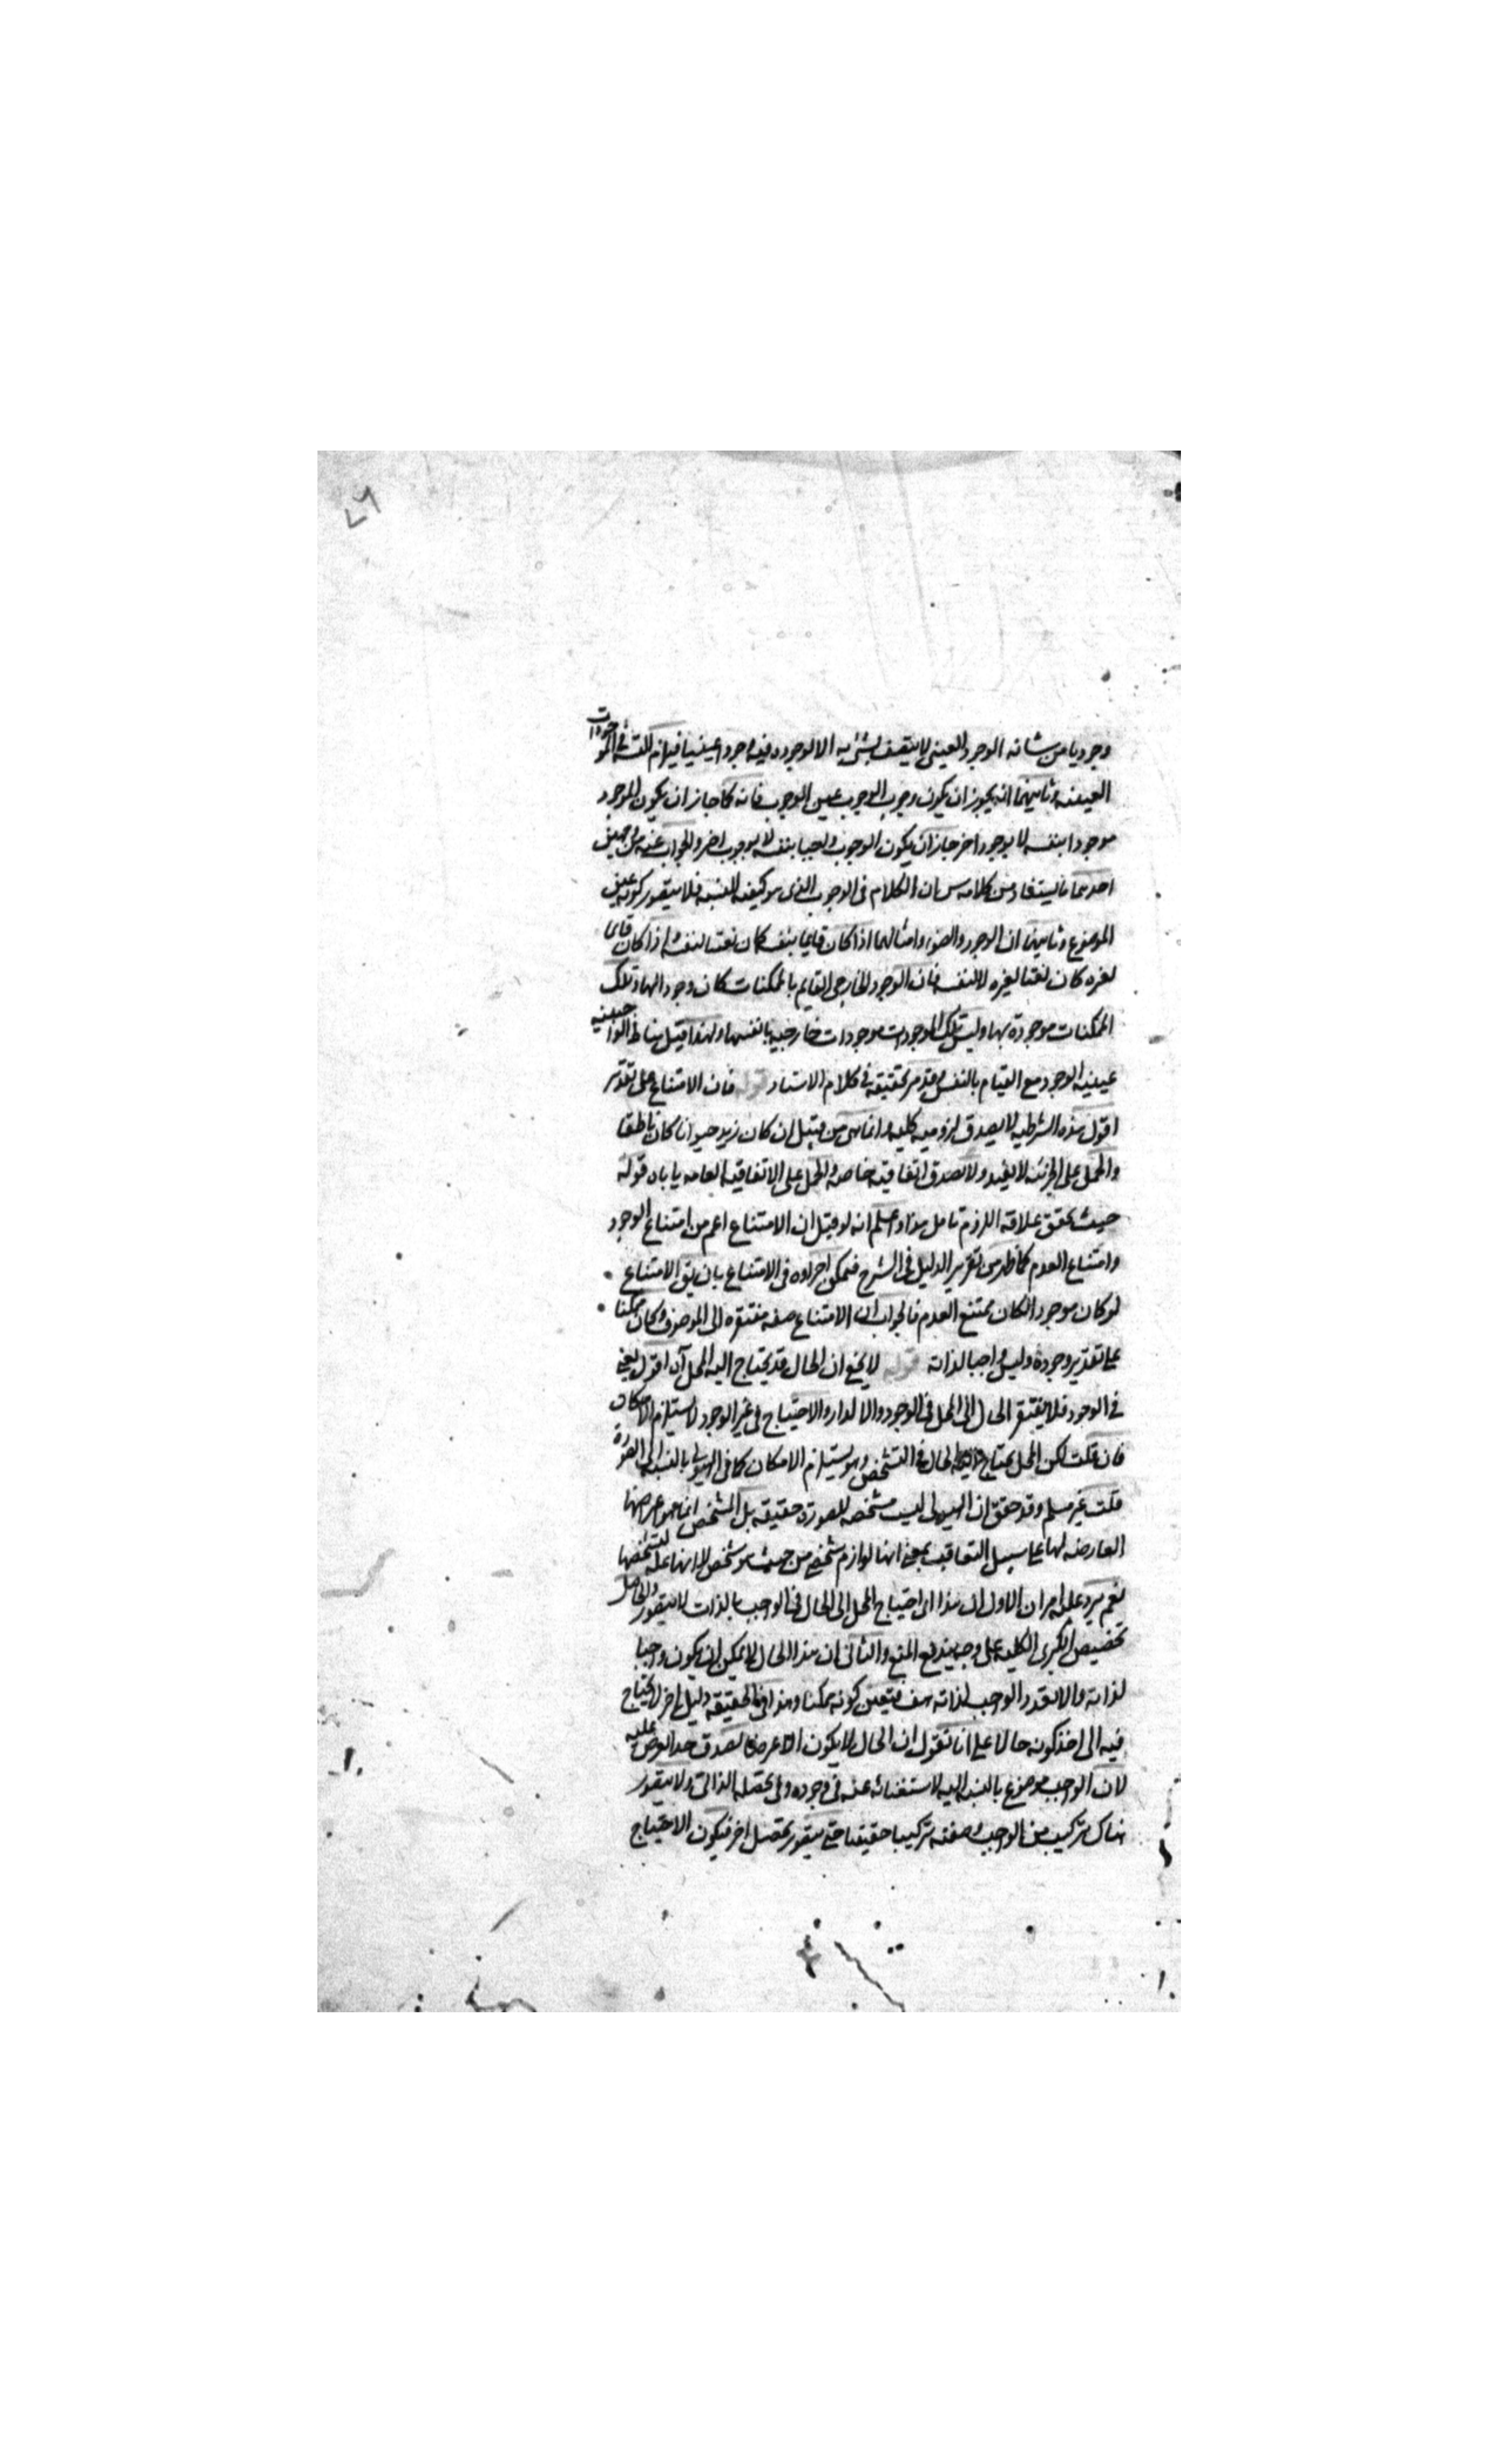 ٤٦
وجوديا من شانه الوجود العينى لا يتصف بشئ به الا لوجوده فيه وجودا عينيا فيلزم التسـ فى الموجودات
العينيه وثانيهما انه يجوز ان يكون وجوب الوجوب عين الوجوب فانه كما جاز ان يكون الموجود
موجودا بنفسه لا بوجود اخر جاز ان يكون الوجوب واجبا بنفسه لا بوجوب اخر والجواب عنه من وجهين
احدهما ما يستفاد من كلامه س ان الكلام فى الوجوب الذى هو كيفيه النسبه فلا يتصور كونه عين
الموضوع وثانيهما ان الوجود والضوء وامثالهما اذا كان قايما بنفسه كان نعتا لنفسه واذا كان قايما
لغيره كان نعتا لغيره لا لنفسه فان الوجود الخارجى القايم بالممكنات كان وجودا لها وتلك
الممكنات موجودة بها وليس تلك الموجودات موجودات خارجيه بانفسها ولهذا قيل مناط الواجبيه
عينيه الوجود مع القيام بالنفس وقد مر تحقيقه فى كلام الاستاد قوله فان الامتناع على تقدير
اقول هذه الشرطيه لا يصدق لزوميه كليه وانما هى من قبيل ان كان زيد حيوانا كان ناطقا
والحمل على الجزئيه لا يفيد ولا تصدق اتفاقيه خاصه والحمل على الاتفاقيه العامه ياباه قوله
حيث تحقق علاقه اللزوم تامل هذا واعلم انه لو قيل ان الامتناع اعم من امتناع الوجود
وامتناع العدم كما ظهر من تقرير الدليل فى الشرح فيمكن اجراوه فى الامتناع بان يق الامتناع
لو كان موجودا لكان ممتنع العدم فالجواب ان الامتناع صفه مفتقره الى الموصوف فكان ممكنا
على تقدير وجوده وليس واجبا لذاته قوله لا يخفى ان الحال قد يحتاج اليه المحل آه اقول يعنى
فى الوجود فلا يفتقر الحال الى المحل فى الوجود والا لدار والاحتياج فى غير الوجود لا يستلزم الامكان
فان قلت لكن المحل يحتاج الى الحال فى التشخص وهو يستلزم الامكان كما فى الهيولى بالنسبه الى الصورة
قلت غير مسلم وقد حقق ان الهيولى ليست مشخصه للصورة حقيقه بل المشخص انما هو اعراضها
العارضه لها على سبيل التعاقب بمعنى انها لوازم شخص من حيث هو شخص لا انها علة لتشخصها
نعم يرد عليه امران الاول ان هذا اى احتياج المحل الى الحال فى الواجب بالذات لا يتصور والحاصل
تخصيص الكبرى الكليه على وجه يندفع المنع والثانى ان هذا الحال لا يمكن ان يكون واجبا
لذاته والا لتعدد الواجب لذاته هف فتعين كونه ممكنا وهذا فى الحقيقه دليل اخر لا يحتاج
فيه الى اخذ كونه حالا على انا نقول ان الحال لا يكون الا عرضا لصدق حد العرض عليه
لان الواجب موضوع بالنسبه اليه لاستغنائه عنه فى وجوده وفى تحصله الذاتى ولا يتصور
هناك تركيب من الواجب وصفته تركيبا حقيقيا حتى يتصور تحصل اخر فيكون الاحتياج